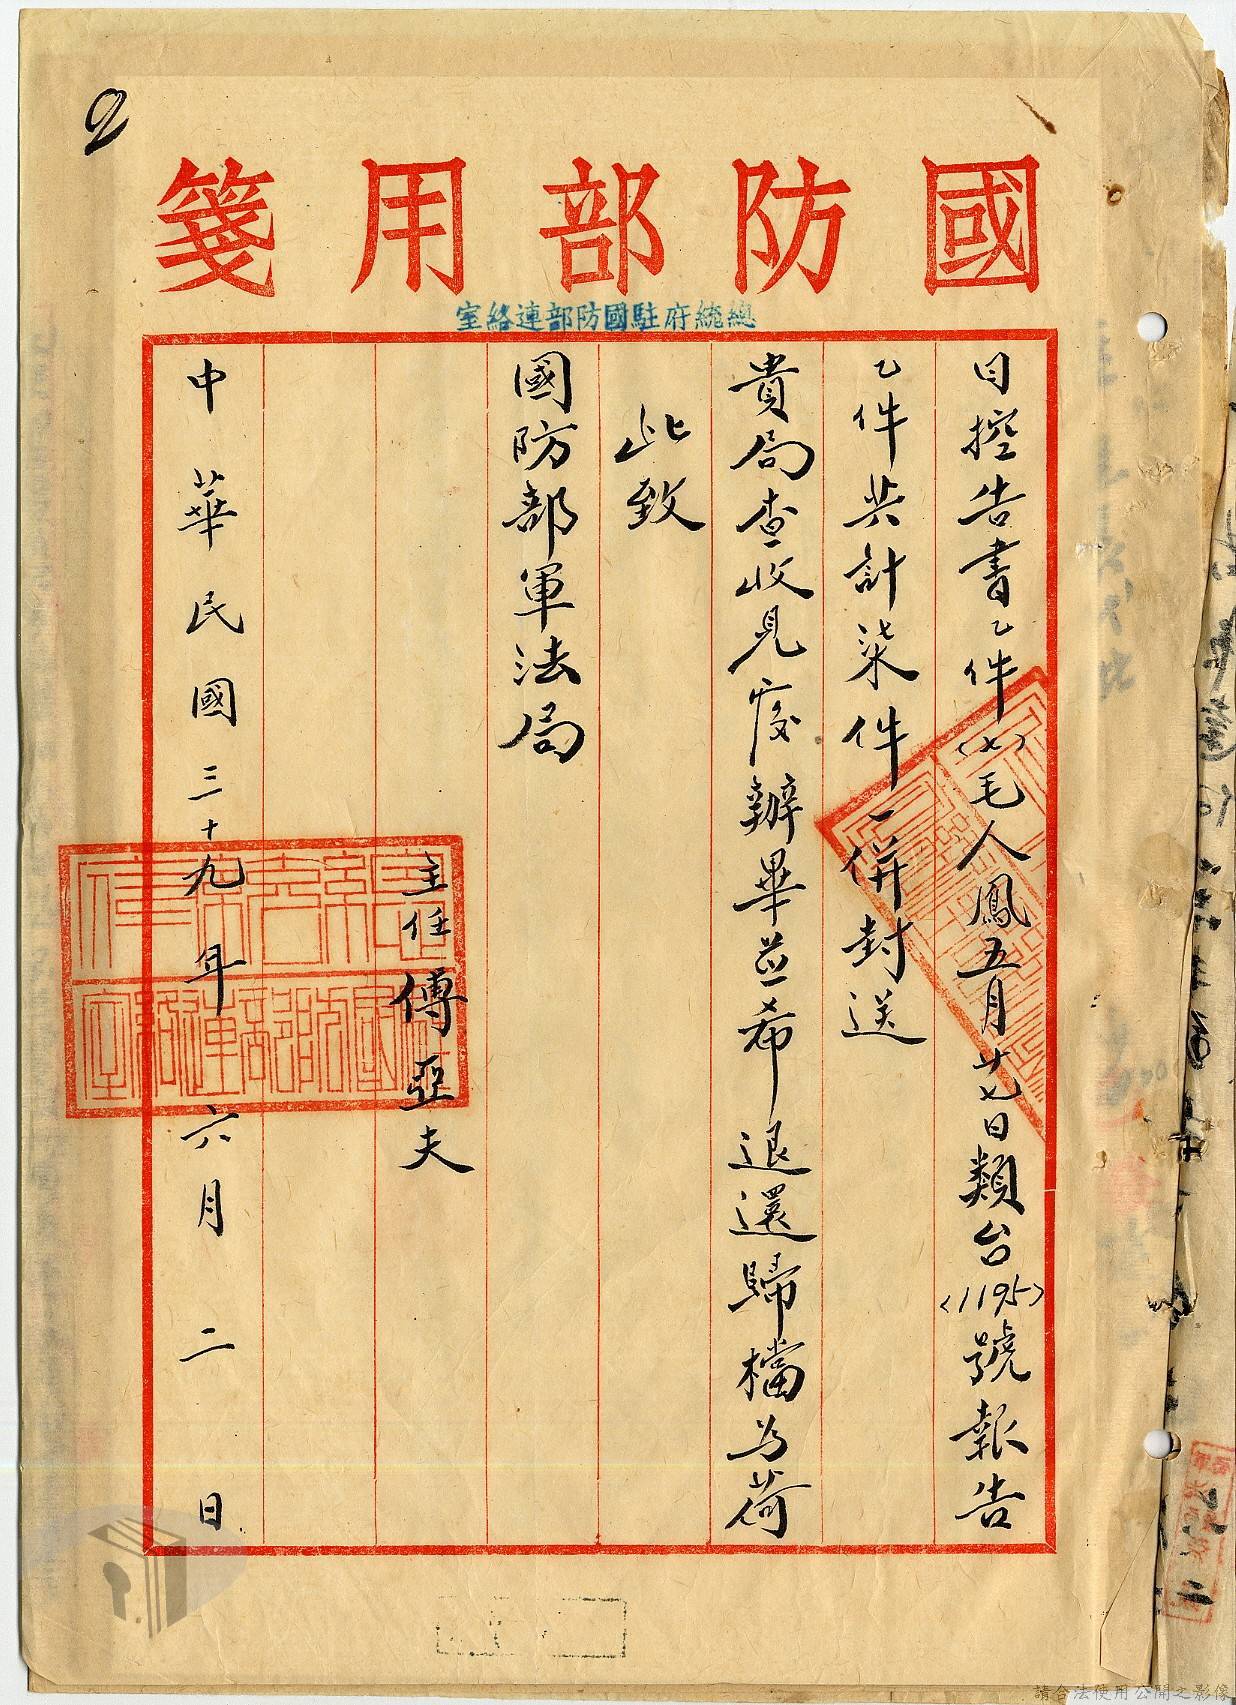 2
國防部用箋
總統府駐國防部連絡室
日控告書乙件(七)毛人鳳五月廿七日類台<1195>號報告
乙件共計柒件一併封送
貴局查收見復辦畢並希退還歸檔為荷
此致
國防部軍法局
主任傅亞夫
中華民國三十九年六月二日
請合法使用公開之影像